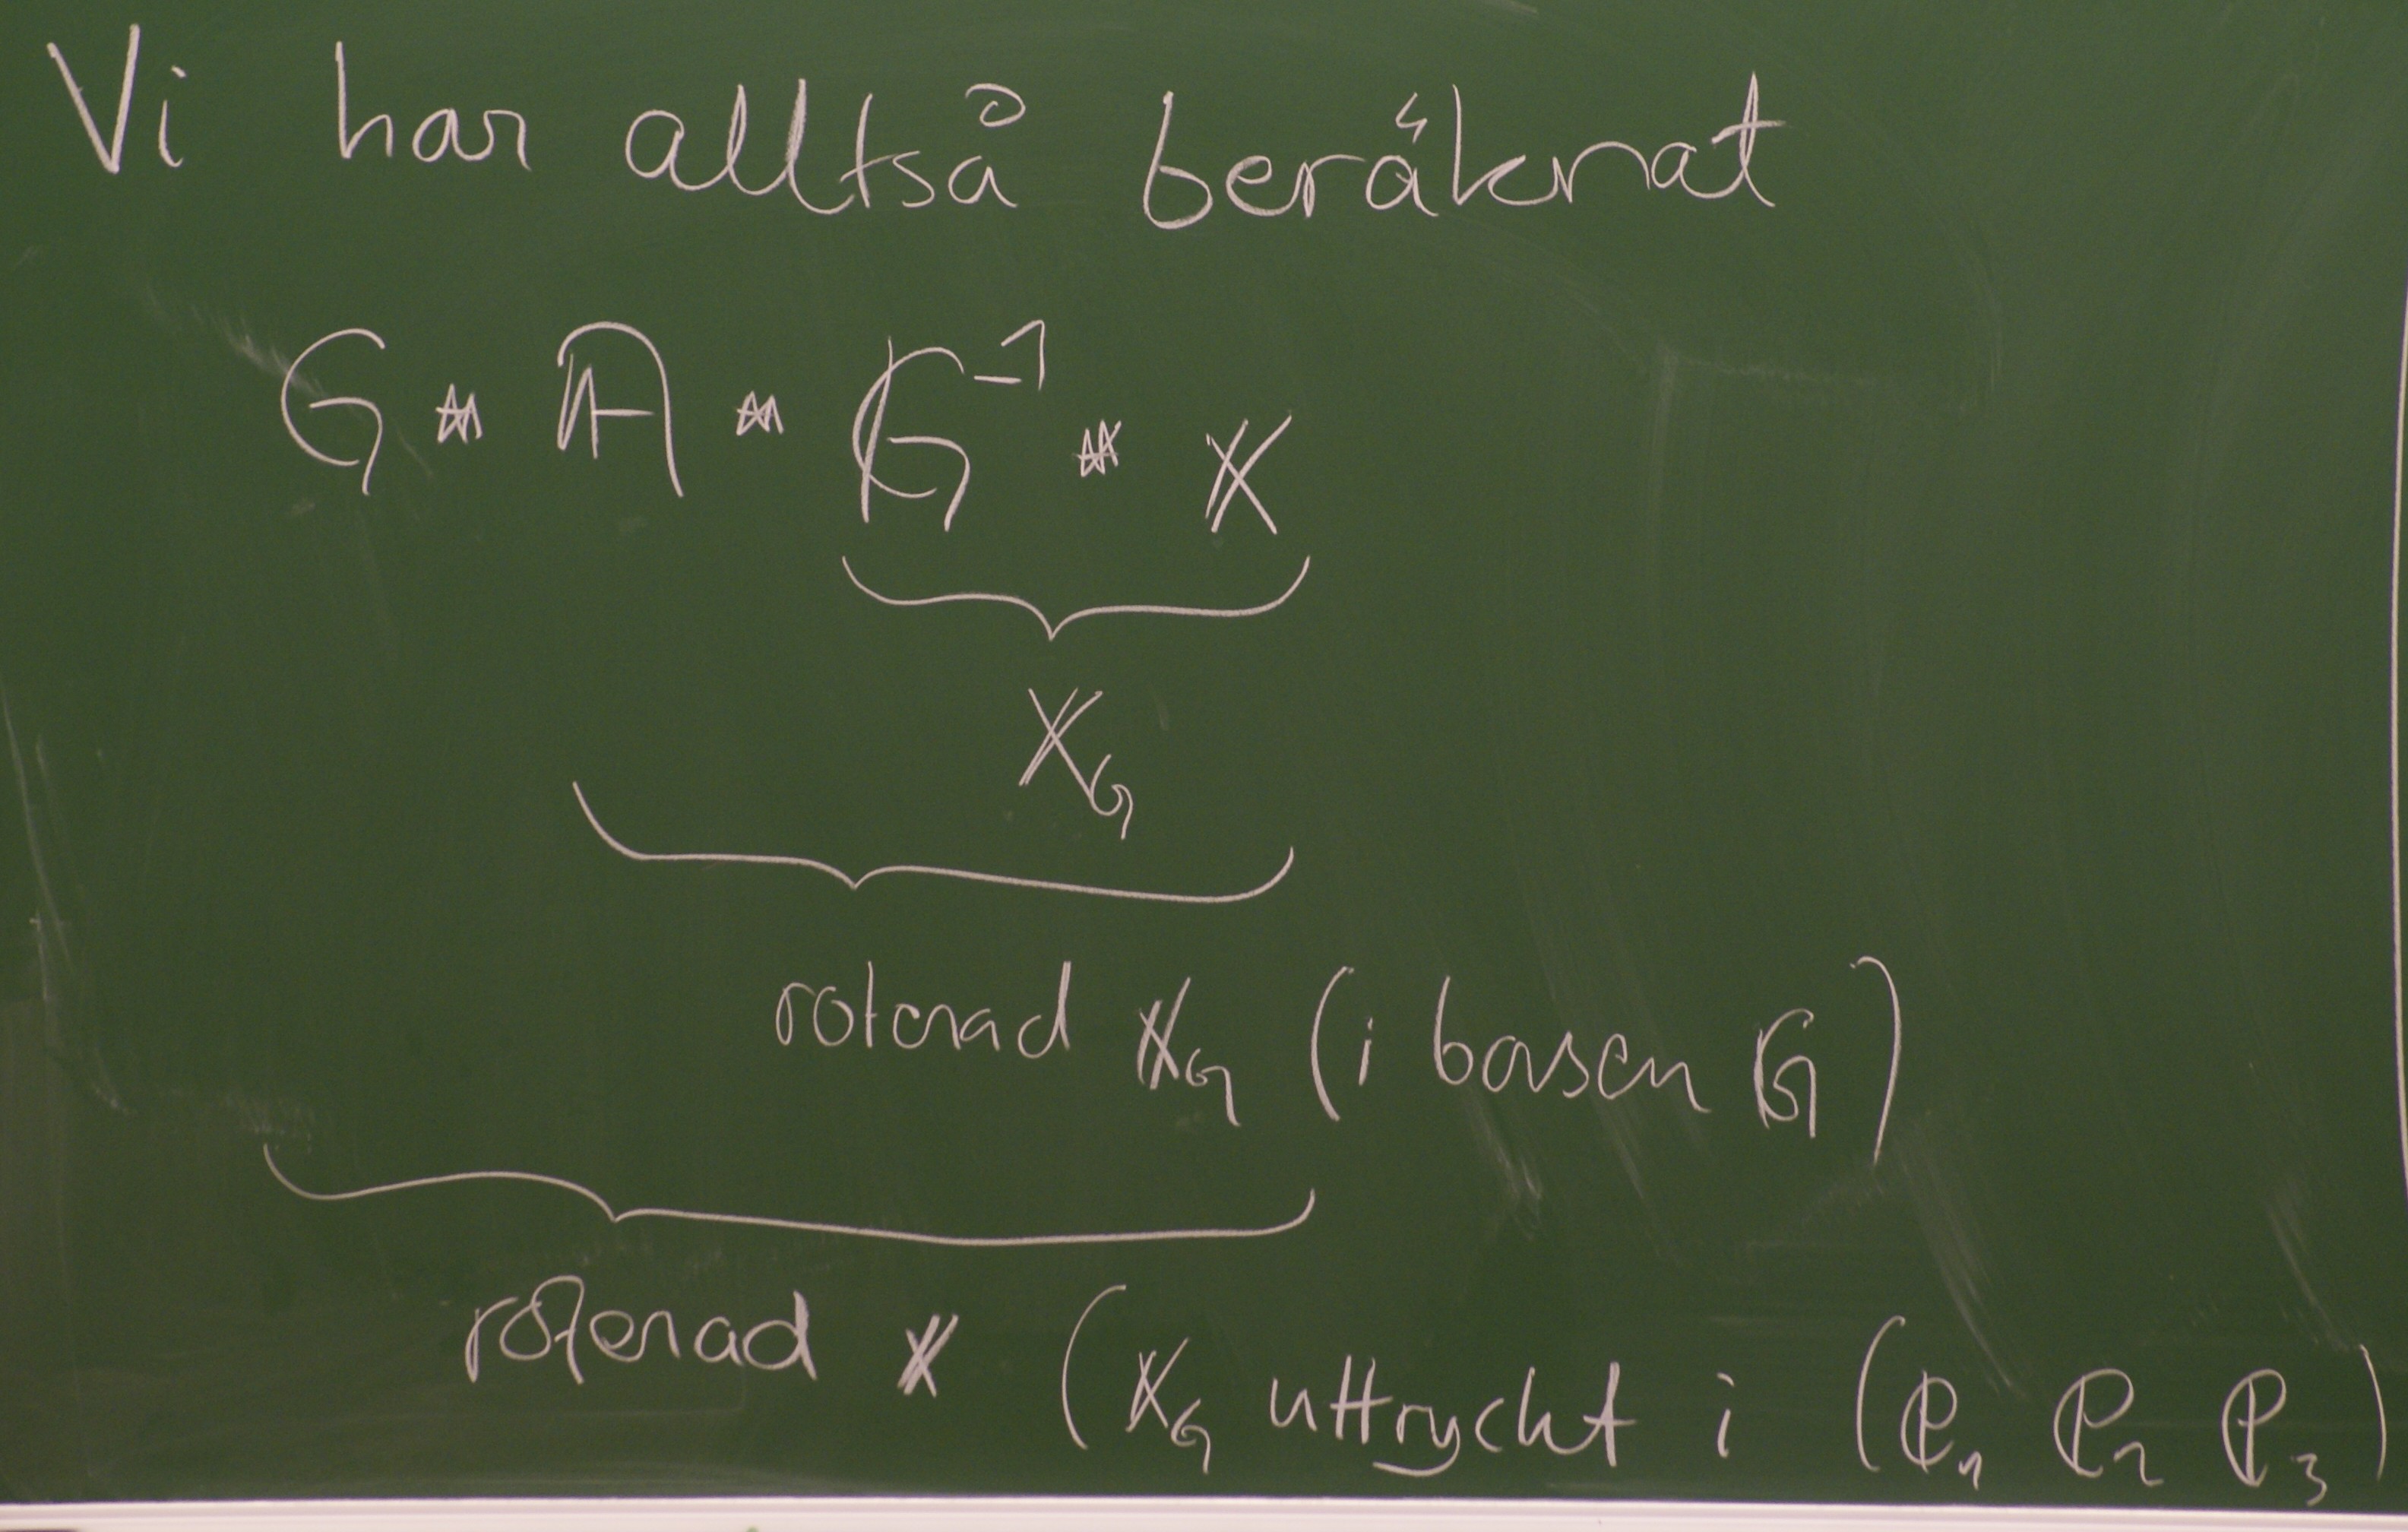 Vi har alltså beräknat
G * A * G⁻¹ * X
X_G
roterad X_G (i basen G)
roterad X (X_G uttryckt i (e₁ e₂ e₃)